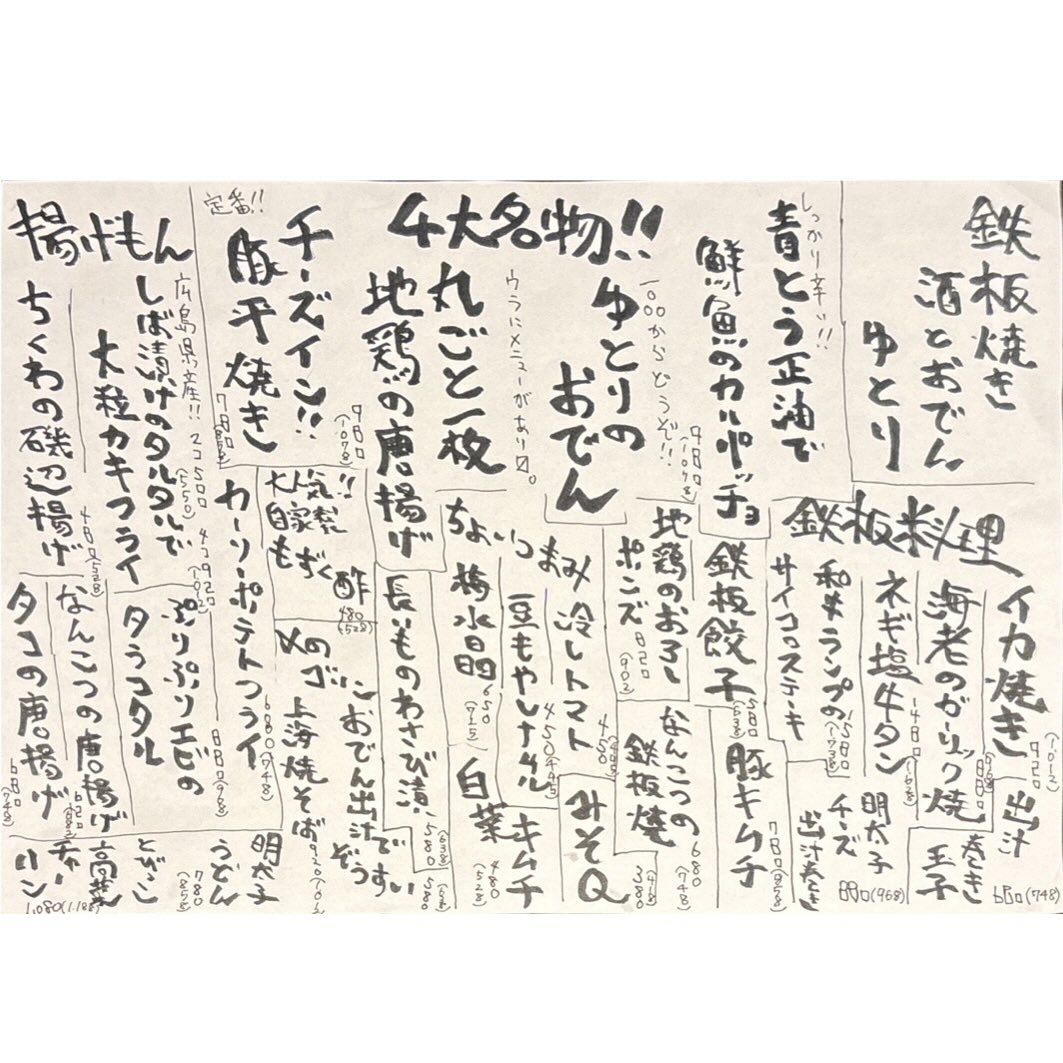 鉄板焼き
酒とおでん
ゆとり
4大名物!!
しっかり辛い!!
青とう正油で
鮮魚のカルパッチョ
980
(1078)
100からどうぞ!!
ゆとりの
おでん
ウラにメニューがあり〼。
丸ごと一枚
地鶏の唐揚げ
980
(1078)
チーズイン!!
定番!!
豚平焼き
780
(858)
揚げもん
広島県産!! 2コ500(550) 4コ920(1012)
しば漬けのタルタルで
大粒カキフライ
ちくわの磯辺揚げ
480(528)
カーリーポテトフライ
680(748)
ぷりぷりエビの
タラコタル
880(968)
なんこつの唐揚げ
620(682)
タコの唐揚げ
680(748)
鉄板料理
イカ焼き
920
(1012)
海老のガーリック焼
880
(968)
ネギ塩牛タン
1480(1628)
和牛ランプの
サイコロステーキ
1580(1738)
鉄板餃子
580
(638)
豚キムチ
780(858)
地鶏のおろし
ポンズ
820(902)
なんこつの
鉄板焼
680
(748)
出汁巻き
玉子
680(748)
明太子
チーズ
出汁巻き
880(968)
ちょいつまみ
冷しトマト
450(495)
豆もやしナムル
450(495)
梅水晶
650
(715)
長いものわさび漬
580
(638)
白菜キムチ
480
(528)
みそQ
380
(418)
大人気!!
自家製
もずく酢
480
(528)
〆のゴハンに
おでん出汁でぞうすい
上海焼そば
920(1012)
明太子
うどん
780
(858)
とびっこ
高菜
チャーハン
1,080(1,188)